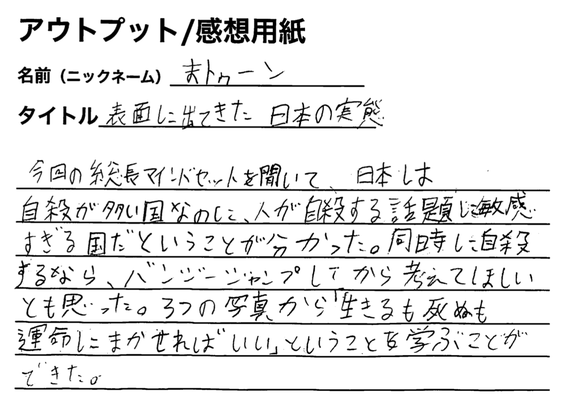 アウトプット/感想用紙
名前（ニックネーム） まトゥーン
タイトル 表面に出てきた 日本の実態
今回の総長マインドセットを聞いて、 日本しは
自殺が多い国なのに、人が自殺する話題に敏感
すぎる国だということが分かった。同時に自殺
するなら、バンジージャンプしてから考えてほしい
とも思った。3つの写真から「生きるも死ぬも
運命にまかせれば いい」ということを学ぶことが
できた。